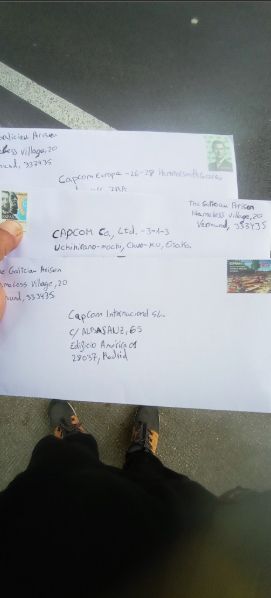 Galician Arisen
Nameless Village, 20
Vermund, 333435
Capcom Europe -26-28 Hammersmith Grove,
The Galician Arisen
Nameless Village, 20
Vermund, 333435
CAPCOM Co., Ltd. -3-1-3
Uchihirano-machi, Chuo-ku, Osaka.
The Galician Arisen
Nameless Village, 20
Vermund, 333435
CapCom Internacional SL.
C/ ALBASANZ, 65
Edificio América 01
28037, Madrid